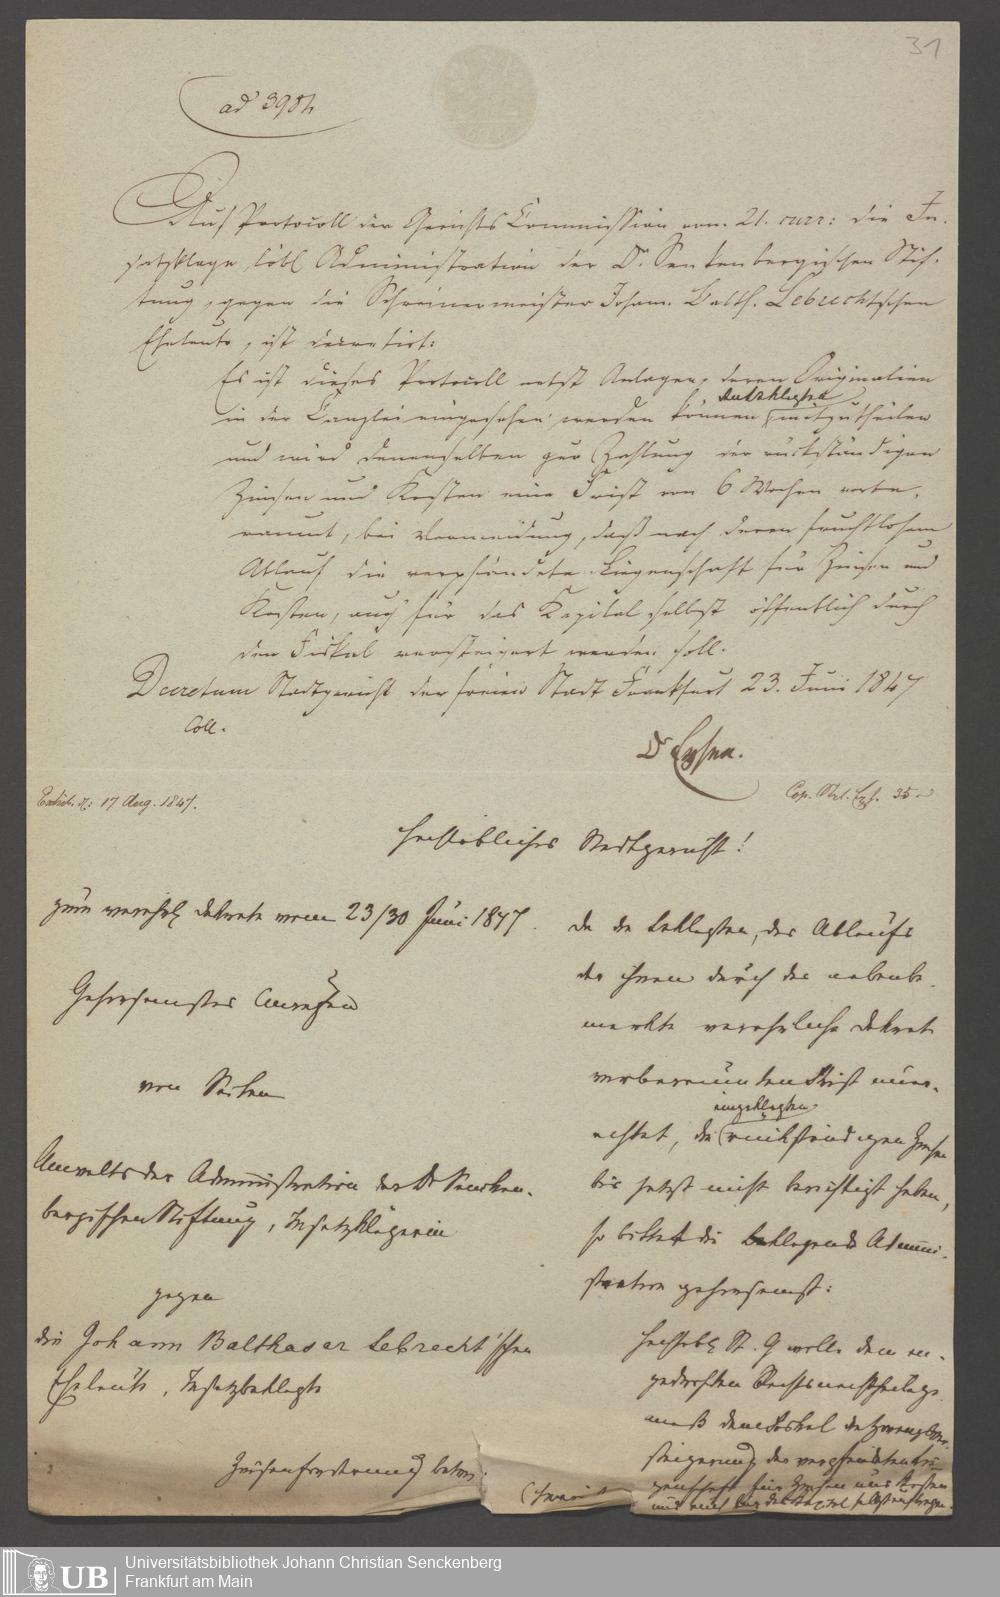 31
ad 398h
Auf Protocoll der Gerichts Commission vom 21. curr: die In-
satzklage löbl Administration der Dr. Senkenbergischen Stif-
tung, gegen die Schreinermeister Johann Balth. Lebrechtschen
Eheleute, ist decretirt:
Es ist dieses Protocoll nebst Anlagen, deren Originalien
Antzklagten
in der Canzlei eingesehen werden können mitzutheilen
und wird denenselben zur Zahlung der rückständigen
Zinsen und Kosten eine Frist von 6 Wochen verbe-
raumt, bei Vermeidung, daß nach deren fruchtlosem
Ablauf die verpfändete Liegenschaft für Zinsen und
Kosten, auch für das Kapital selbst öffentlich durch
den Fiskal versteigert werden soll.
Decretum Stadtgericht der freien Stadt Frankfurt 23. Juni 1847
Coll.
Dr
Exhib. d: 17 Aug. 1847.
35
Hochlöbliches Stadtgericht!
zum verehrl Dekrete vom 23/30 Juni 1847.
Gehorsamstes Anrufen
von Seiten
Anwalts der Administration der Dr Sencken-
bergischen Stiftung, Insatzklägerin
gegen
die Johann Balthaser Lebrecht'schen
Eheleute, Insatzbeklagte
Zinsenforderung betr.
Da die Beklagten, des Ablaufs
der ihnen durch das nebenbe-
merkte verehrliche Dekret
verberaumten Frist uner-
eingeklagten
achtet, die rückständigen Zinsen
bis jetzt nicht berichtigt haben,
so bittet die klagende Admini-
stration gehorsamst:
Hochlöbl St. G wolle den an-
gedrohten Rechtsnachtheil ge-
mäß dem Fiskal die Zwangsver-
steigerung der verpfändeten Lie-
genschaft für Zinsen und Kosten
und auch für das Kapital selbst
UB
Universitätsbibliothek Johann Christian Senckenberg
Frankfurt am Main